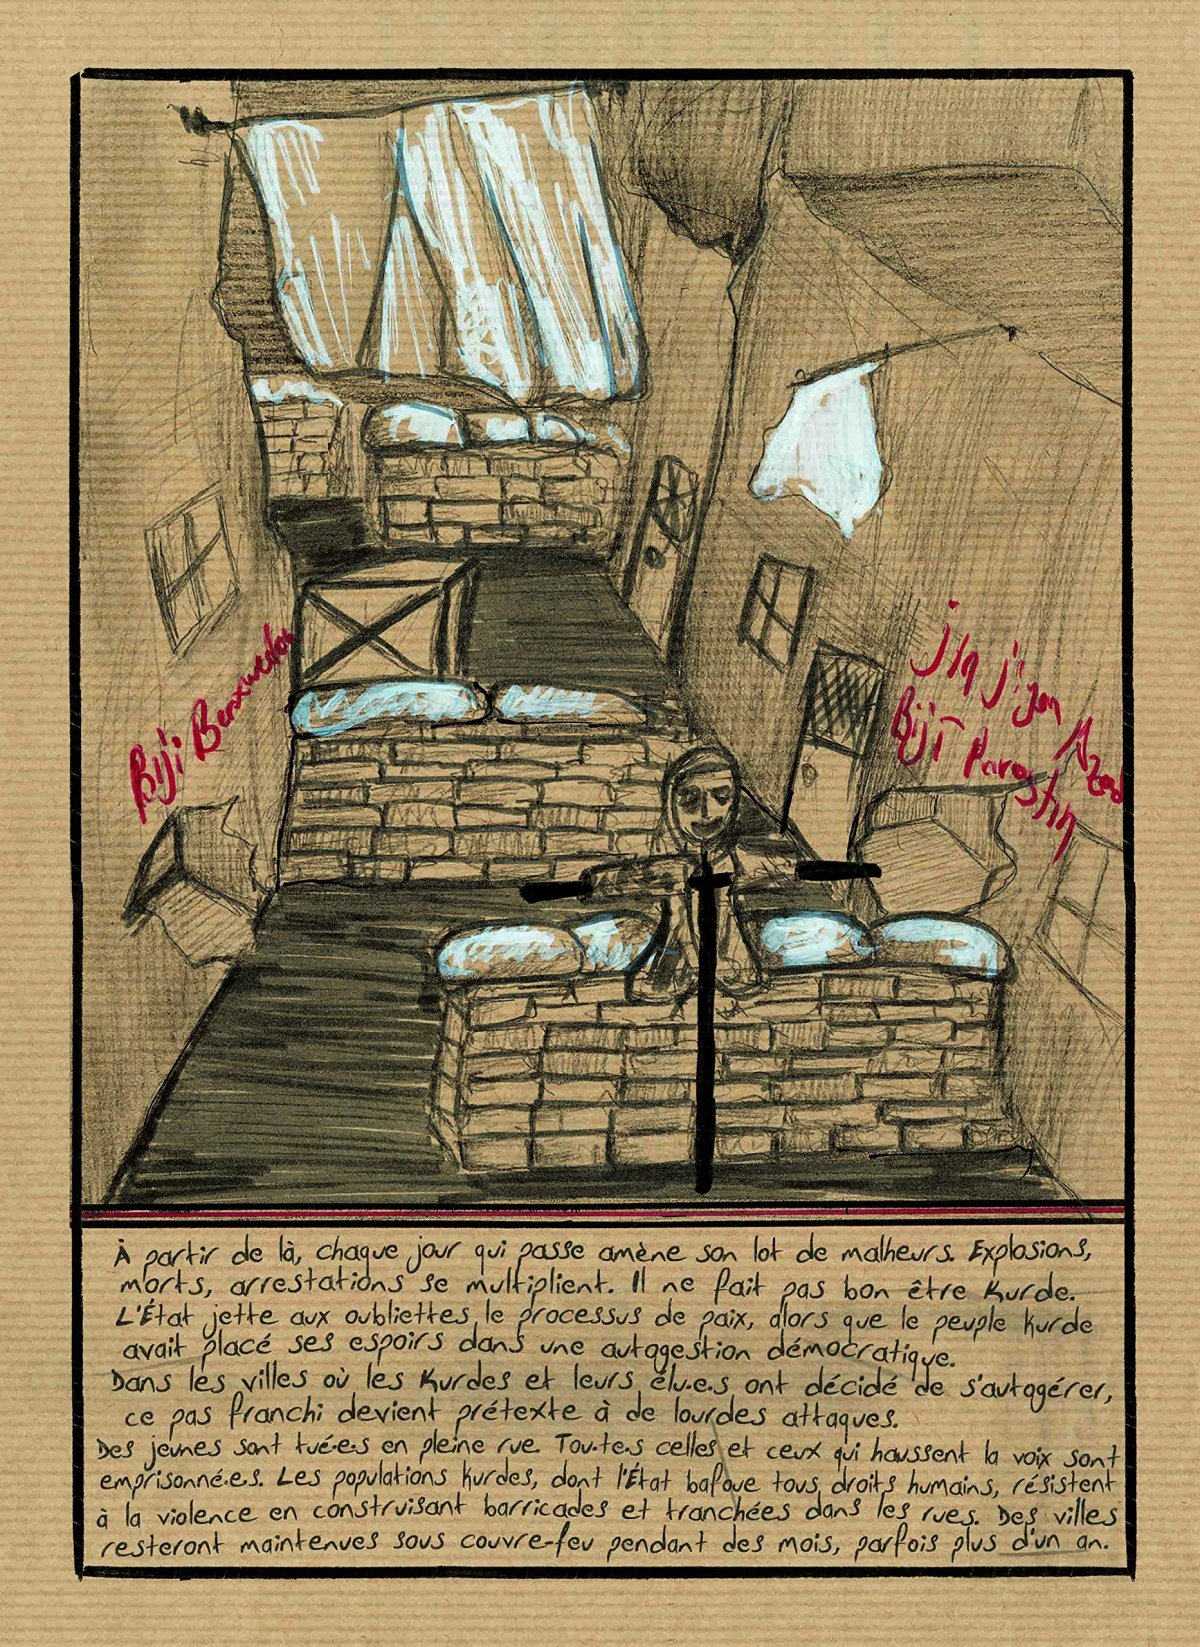 Biji Berxwedan
Jın jiyan Azad
Biji Parastın
À partir de là, chaque jour qui passe amène son lot de malheurs. Explosions,
morts, arrestations se multiplient. Il ne fait pas bon être Kurde.
L'État jette aux oubliettes le processus de paix, alors que le peuple kurde
avait placé ses espoirs dans une autogestion démocratique.
Dans les villes où les Kurdes et leurs élu.e.s ont décidé de s'autogérer,
ce pas franchi devient prétexte à de lourdes attaques.
Des jeunes sont tué.e.s en pleine rue. Tou.te.s celles et ceux qui haussent la voix sont
emprisonné.e.s. Les populations kurdes, dont l'État bafoue tous droits humains, résistent
à la violence en construisant barricades et tranchées dans les rues. Des villes
resteront maintenues sous couvre-feu pendant des mois, parfois plus d'un an.